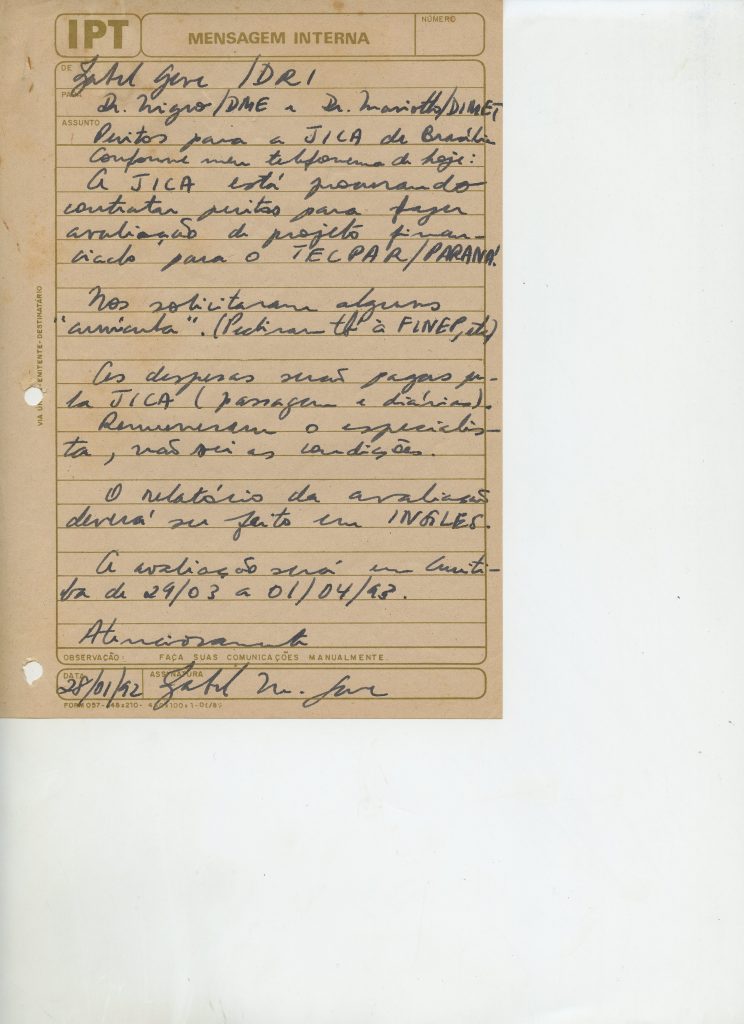 IPT
MENSAGEM INTERNA
NÚMERO
DE
/DRI
PARA
Dr. Nigro/DME e Dr. Mariotto/DIMET
ASSUNTO
Peritos para a JICA de Brasília
Conforme meu telefonema de hoje:
A JICA está procurando
contratar peritos para fazer
avaliação de projeto finan-
ciado para o TECPAR/PARANÁ.
Nos solicitaram alguns
"curricula". (Pediram tb à FINEP, etc)
As despesas serão pagas pe-
la JICA (passagem e diárias).
Remuneram o especialis-
ta, não sei as condições.
O relatório da avaliação
deverá ser feito em INGLES.
A avaliação será em Curiti-
ba de 29/03 a 01/04/92.
Atenciosamente
OBSERVAÇÃO: FAÇA SUAS COMUNICAÇÕES MANUALMENTE.
DATA
28/01/92
ASSINATURA
FORM 057-148x210-